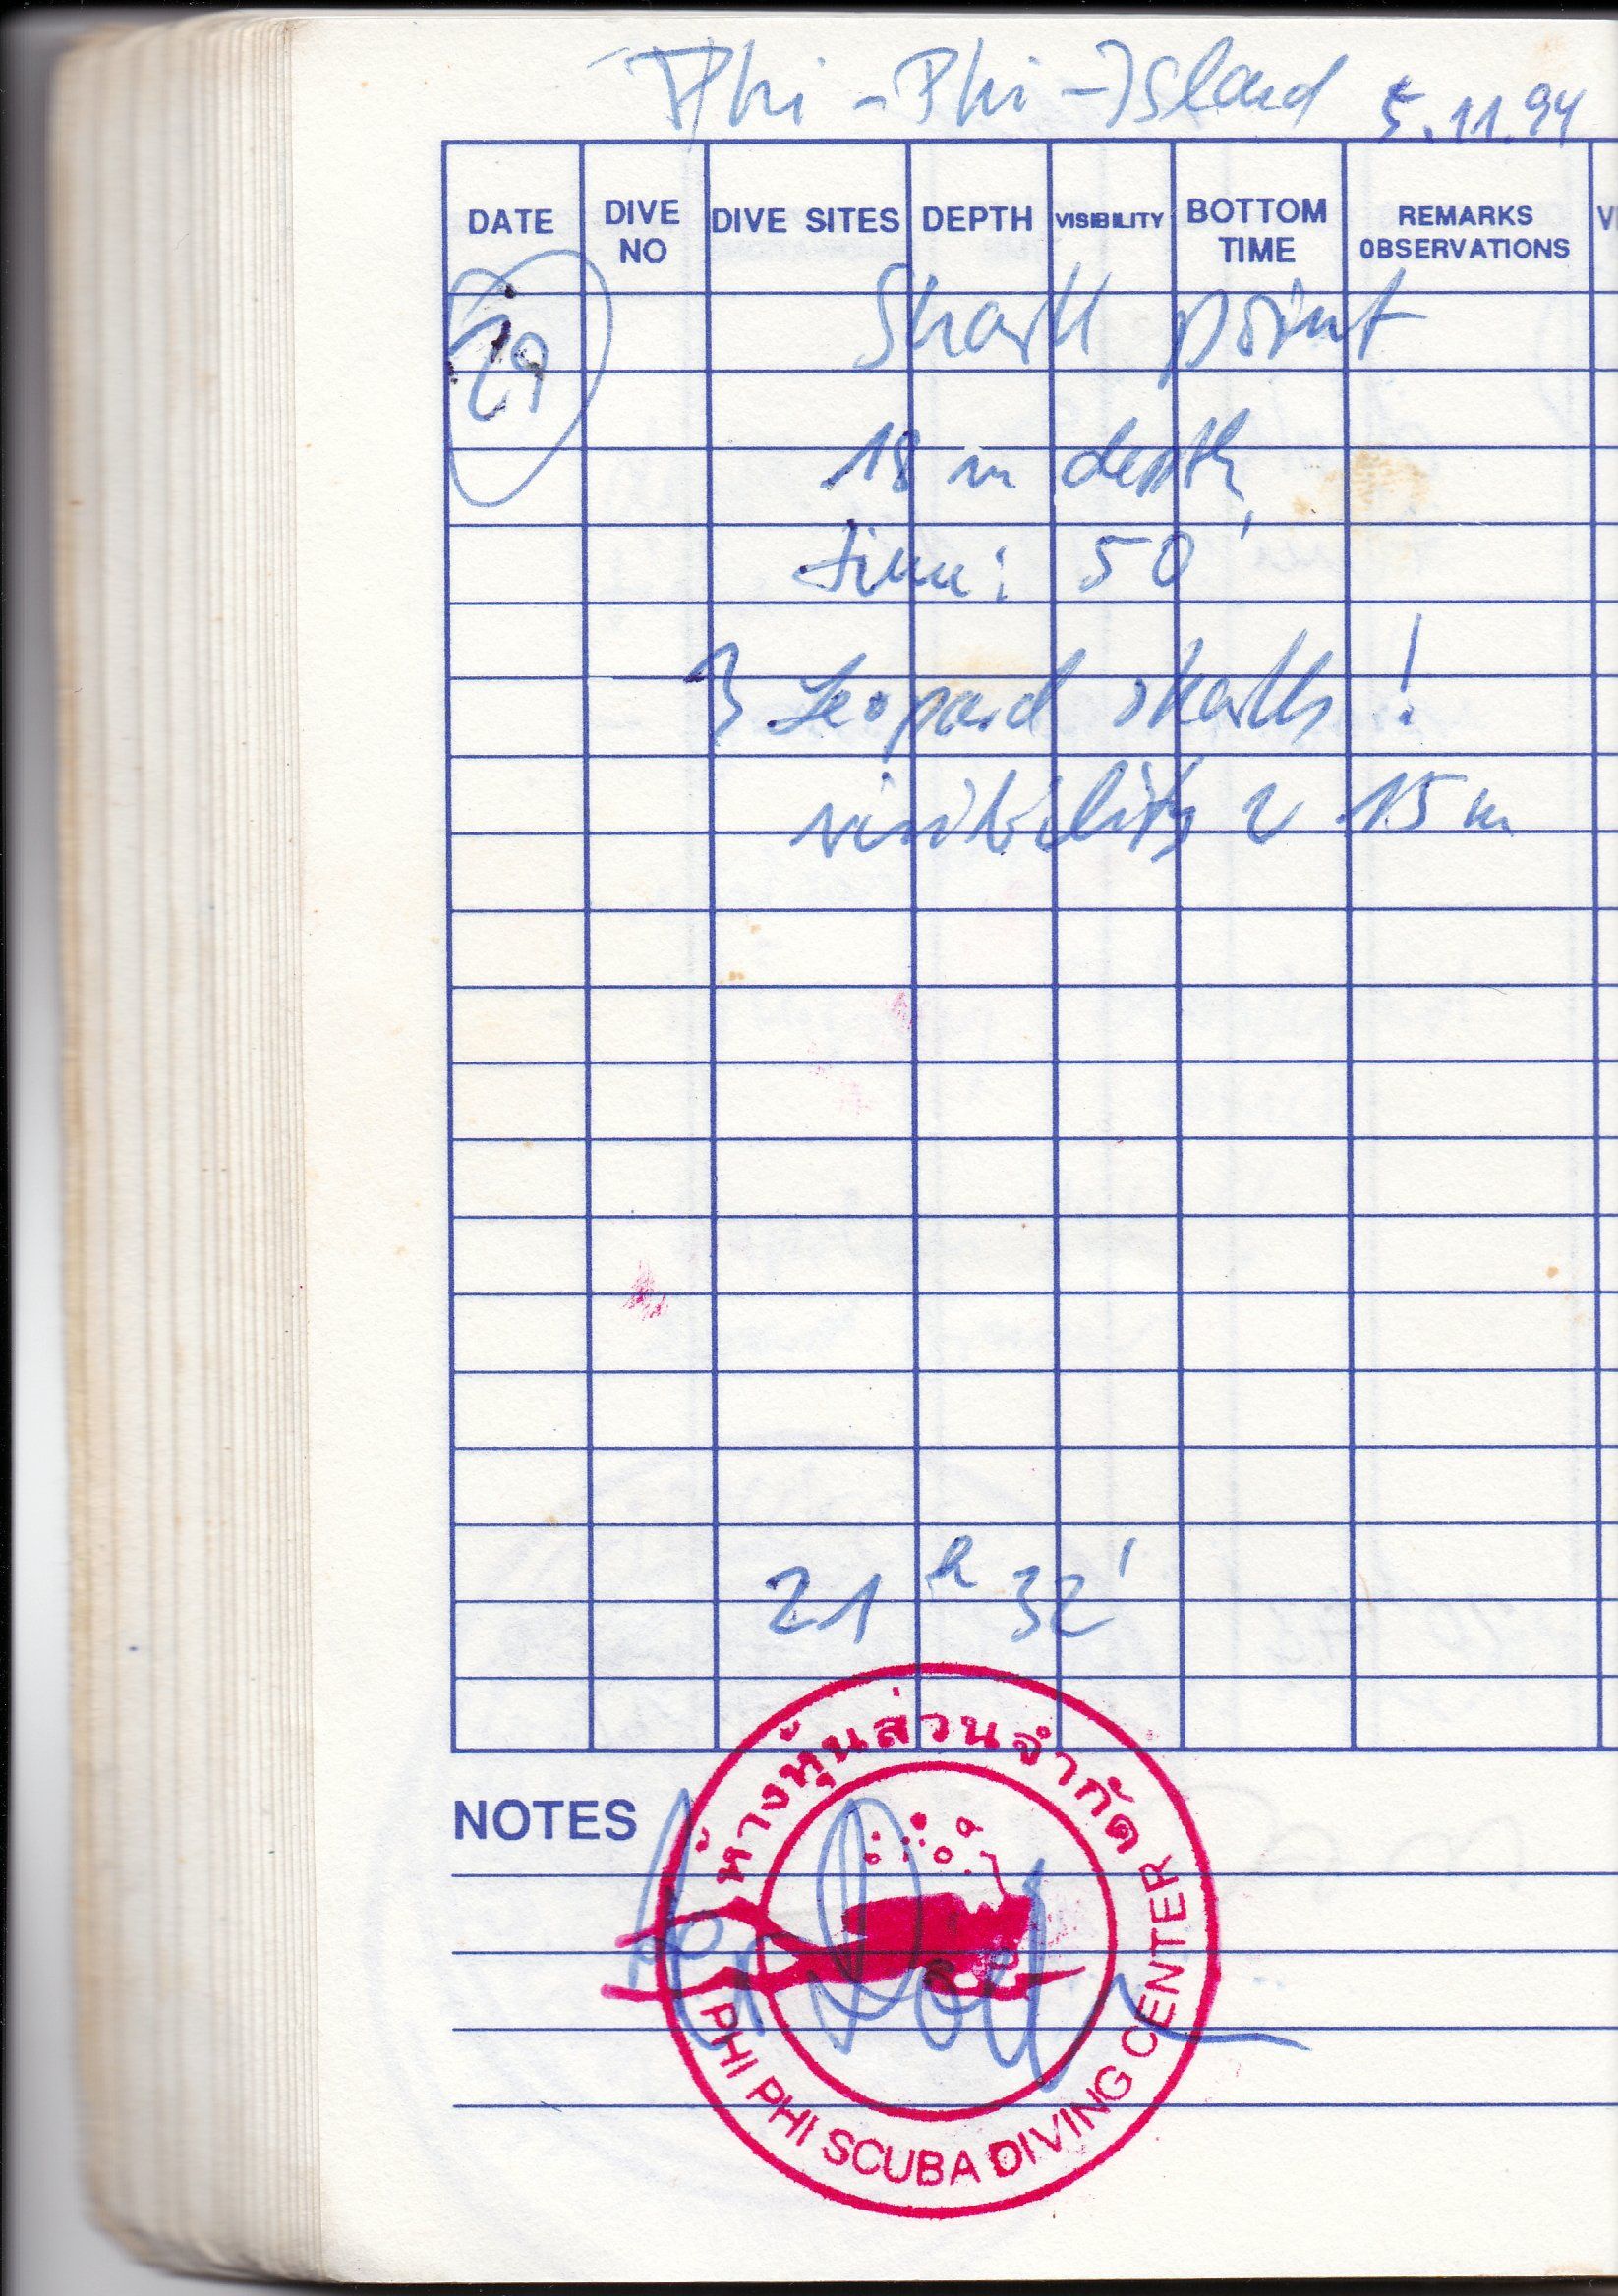 Phi-Phi-Island 5.11.94
DATE DIVE NO DIVE SITES DEPTH VISIBILITY BOTTOM TIME REMARKS OBSERVATIONS
29
Shark point
18 m depth
time: 50'
3 Leopard sharks!
visibility ~ 15 m
21 h 32'
NOTES
ห้างหุ้นส่วนจำกัด
PHI PHI SCUBA DIVING CENTER